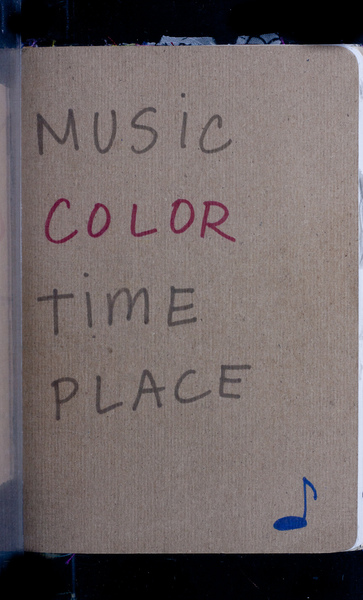 MUSiC
COLOR
TiME
PLACE